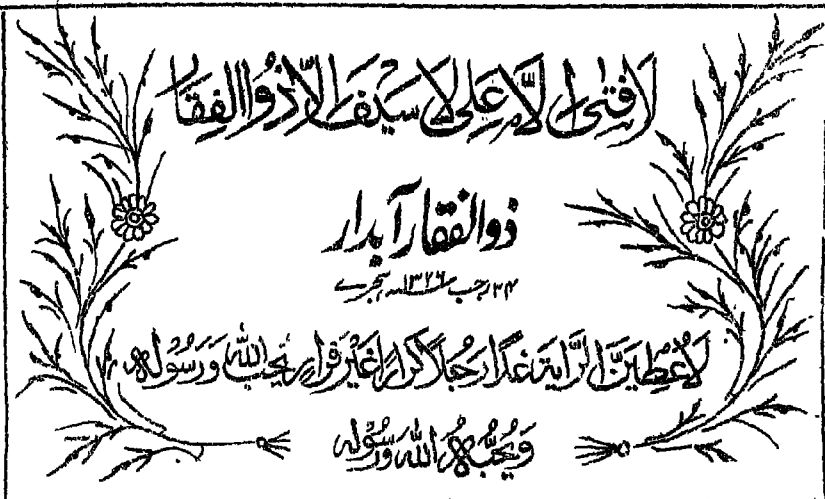 لَا فَتٰى اِلَّا عَلِى لَا سَيْفَ اِلَّا ذُوالفِقَار
ذوالفقار آبدار
۲۴ رجب ۱۳۲۶ سنہ ہجری
لَاُعْطِيَنَّ الرَّايَةَ غَدًا رَجُلًا كَرَّارًا غَيْرَ فَرَّارٍ يُحِبُّ اللهَ وَرَسُوْلَهٗ
وَيُحِبُّهُ اللهُ وَرَسُوْلُهٗ